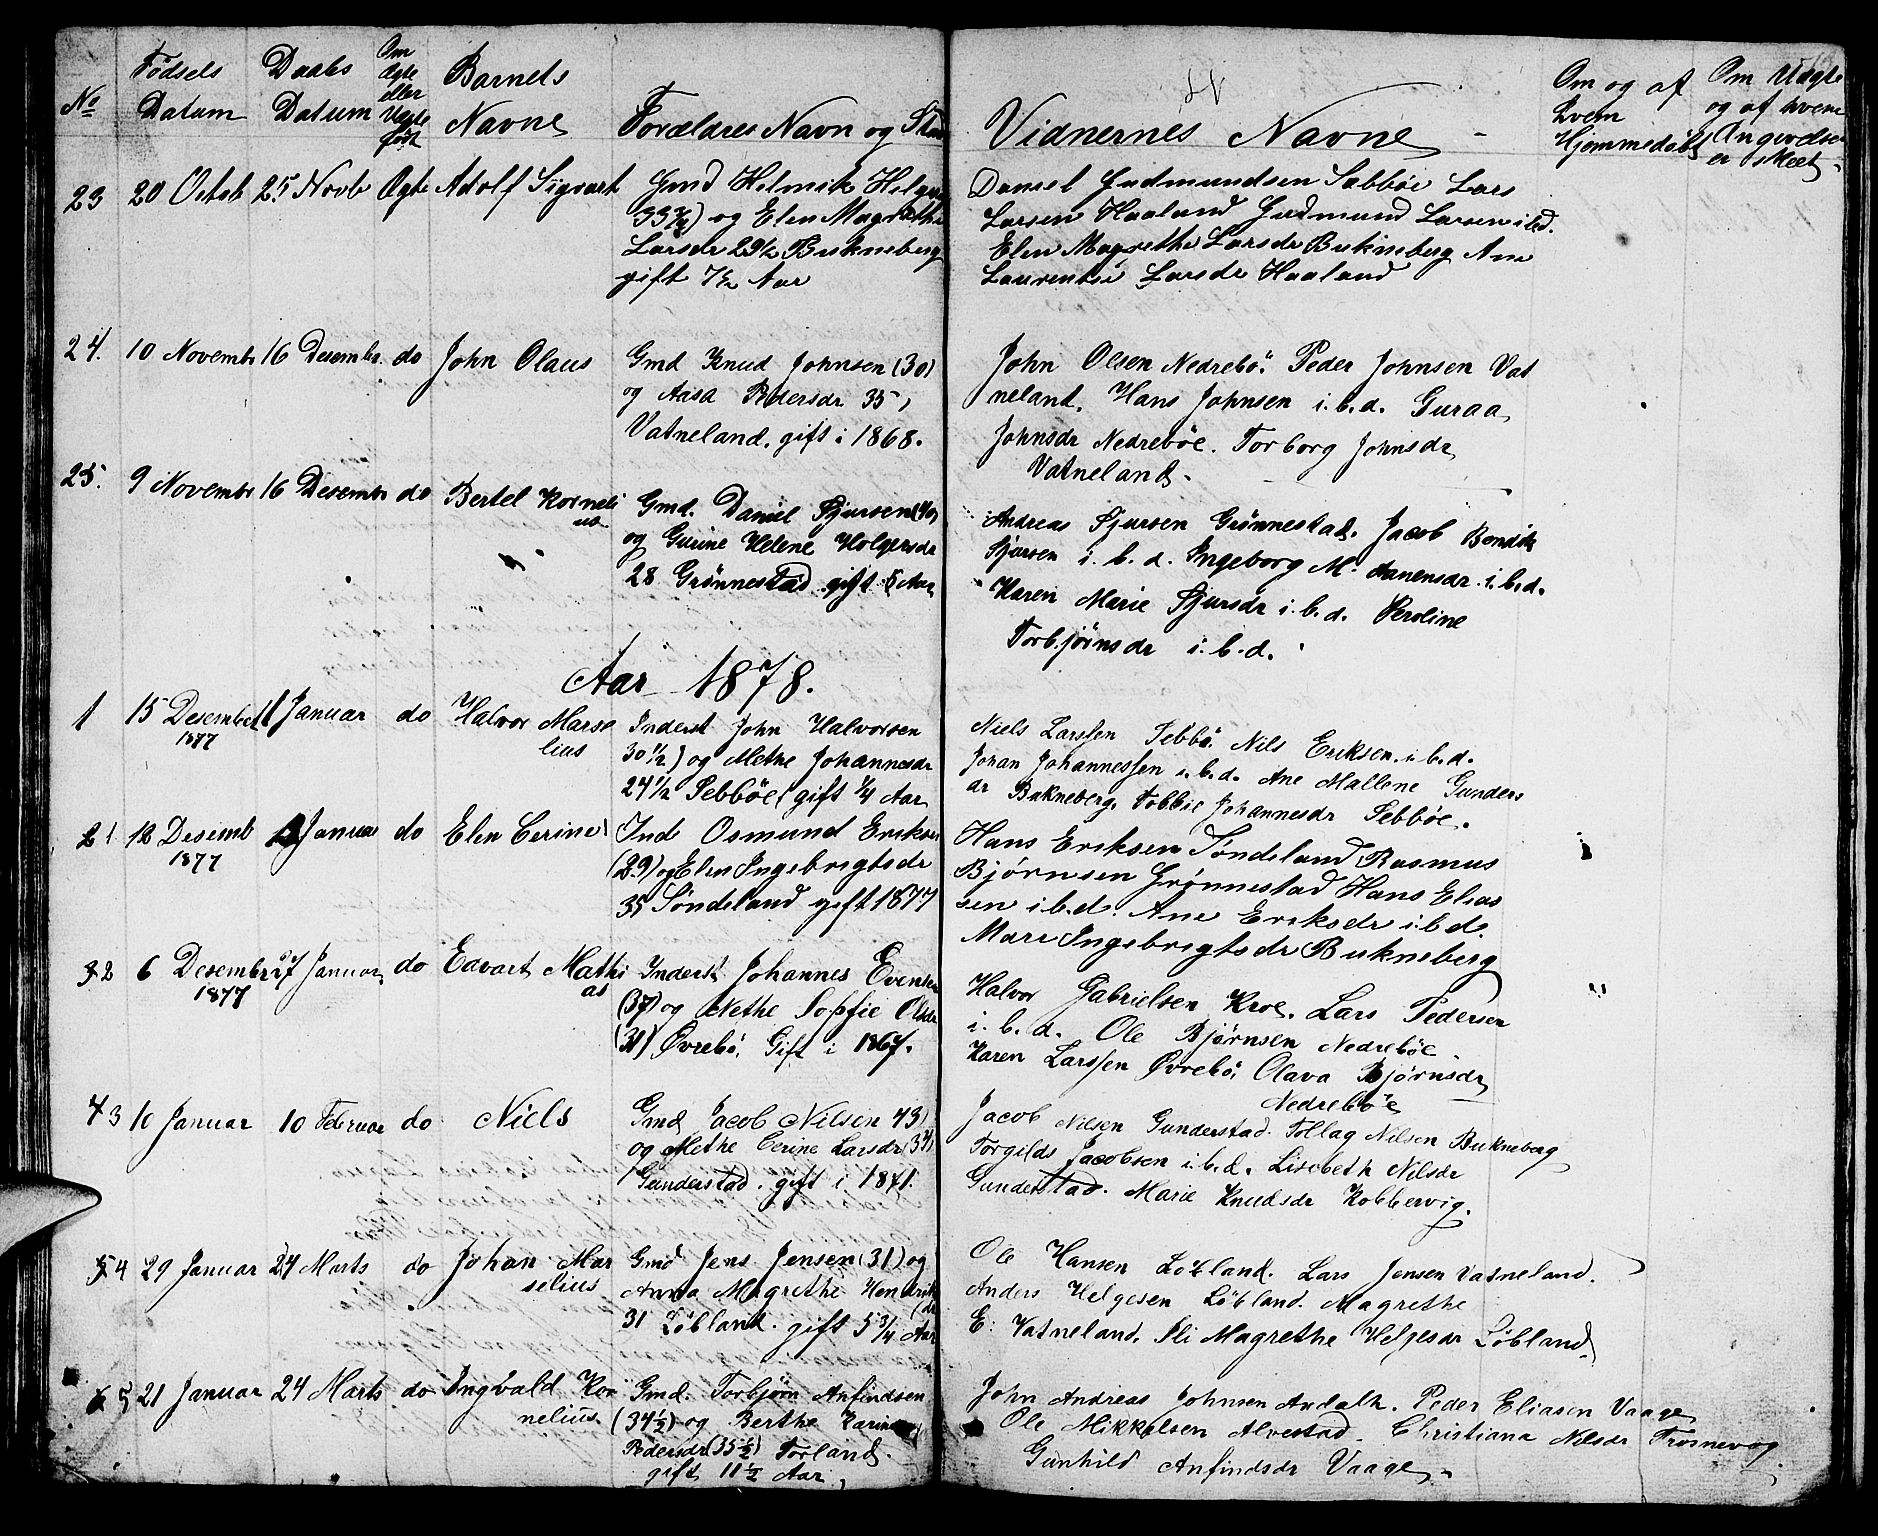 No
Födsels
Datum
Daabs
Datum
Om
Ægte
eller
Uægte
født
Barnets
Navne
Forældres Navn og Stan
Vidnernes Navne
Om og af
hvem
Hjemmedøbt
Om Uægte
og af hvem
Angivelse
er skeet
23 20 Octob 25 Novb Ægte Adolf Sigvart
Gmd Helmik Helges
33½) og Elen Magrethe
Larsdr 29½ Bukneberg
gift 7½ Aar
Daniel Gudmundsen Sæbböe Lars
Larsen Haaland Gudmund Larsen ibd.
Elen Magrethe Larsdr Bukneberg Ane
Laurentse Larsdr Haaland
24. 10 Novembr 16 Desembr. do John Olaus
Gmd Knud Johnsen (30)
og Aasa Pedersdr 35,
Vatneland. gift i 1868.
John Olsen Nedrebö. Peder Johnsen Vat
neland. Hans Johnsen i.b.d. Guraa
Johnsdr Nedreböe. Torborg Johnsdr
Vatneland.
25. 9 Novembr 16 Desembr do Bertel Korneli
us
Gmd. Daniel Sjursen (40)
og Gurine Helene Holgersdr
28 Grönnestad gift 5 Aar
Andreas Sjursen Grönnestad. Jacob Bendik
Sjursen i.b.d. Ingeborg M. Aanensdr i.b.d.
Karen Marie Sjursdr i.b.d. Seroline
Torbjörnsdr i.b.d.
Aar 1878.
1 15 Desember 1 Januar do Halvor Marse
1877
lius
Inderst John Halvorsen
30½) og Methe Johannesdr
24½ Sebböe gift ¼ Aar
Niels Larssen Sebbö. Nils Eriksen. i.b.d.
Johan Johannessen i.b.d. Ane Mallene Gunders
dr Bukneberg. Tobbie Johannesdr Sebböe.
2 1 12 Desemb Januar do Elen Cerine
1877
Ind Osmund Eriksen
(29) og Elen Ingebrigtsdr
35 Söndeland gift 1877
Hans Eriksen Söndeland Rasmus
Björnsen Grönnestad Hans Elias
sen i.b.d. Ane Eriksdr i.b.d.
Mari Ingebrigtsdr Bukneberg
3 2 6 Desembr 27 Januar do Edvart Mathi
1877
as
Inderst Johannes Evensen
(37) og Methe Sopfie Olsdr
(31) Øvrebö. Gift i 1867.
Halvor Gabrielsen Kroe. Lars Pedersen
i.b.d. Ole Bjørnsen Nedreböe
Karen Larssen Øvrebö. Olava Bjørnsdr
Nedreböe
4 3 10 Januar 10 Februar do Niels
Gmd Jacob Nilsen 43)
og Methe Cerine Larsdr (34)
Gunderstad. gift i 1871.
Jacob Nilsen Gunderstad. Tollag Nilsen Bukneberg
Torgilds Jacobsen i.b.d. Lisebeth Nilsdr
Gunderstad. Marie Knudsdr Kobbervig.
5 4 29 Januar 24 Marts do Johan Mar
selius
Gmd Jens Jensen (31) og
Anna Magrethe Hendrik
dr
31 Löbland. gift 5¾ Aar
Ole Hansen Löbland. Lars Jensen Vatneland.
Anders Helgesen Löbland. Magrethe
E. Vatneland. Sli Magrethe Helgesdr Löbland
6 5 21 Januar 24 Marts do Ingvald Kor
nelius
Gmd. Torbjörn Anfindsen
(34½) og Berthe Karine
Pedersdr (35½) Torland.
gift 11½ Aar
John Andreas Johnsen Andalh. Peder Eliasen Vaage
Ole Mikkelsen Alvestad. Christiana Nilsdr Trosnevog
Gunhild Anfindsdr Vaage.